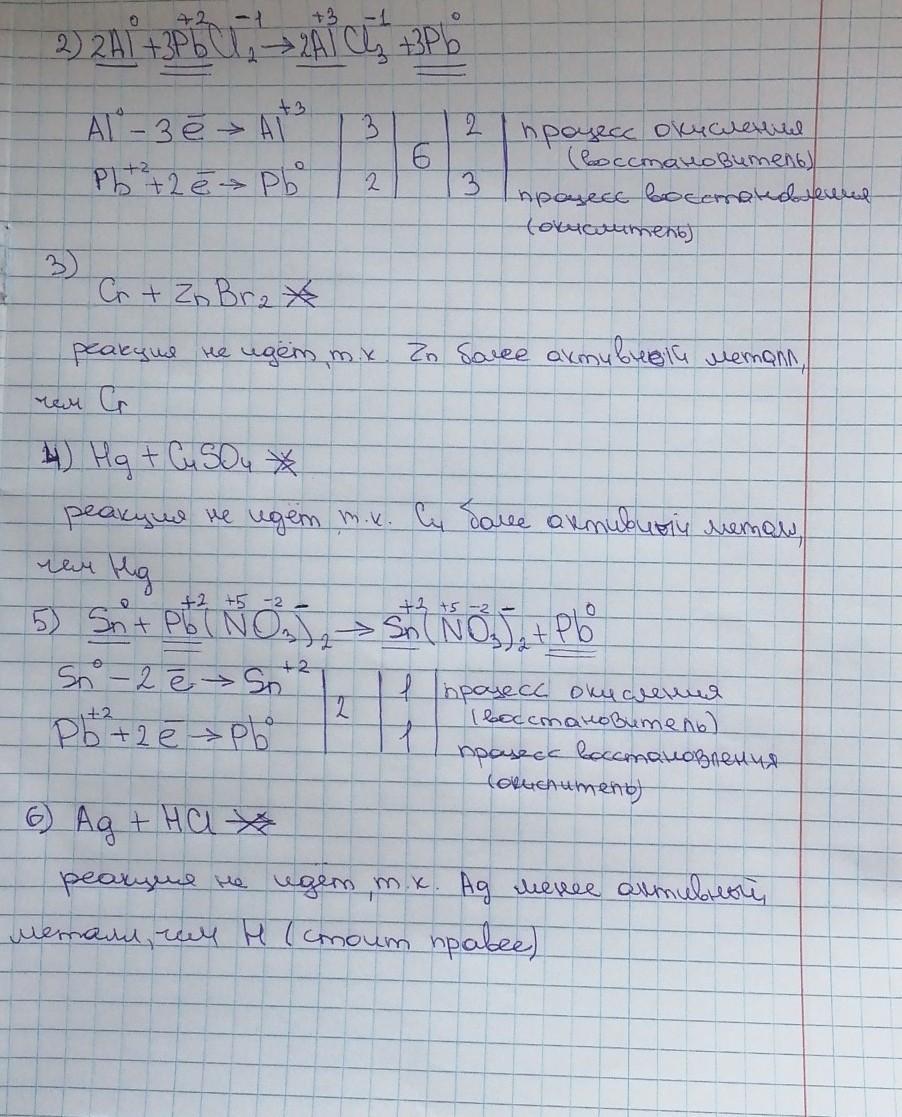 2) 2Al⁰ + 3Pb⁺²Cl₂⁻¹ → 2Al⁺³Cl₃⁻¹ + 3Pb⁰
Al⁰ - 3ē → Al⁺³ | 3 | 6 | 2 | процесс окисления
(восстановитель)
Pb⁺² + 2ē → Pb⁰ | 2 | 3 | процесс восстановления
(окислитель)
3)
Cr + ZnBr₂ ↛
реакция не идёт, т.к. Zn более активный металл,
чем Cr
4) Hg + CuSO₄ ↛
реакция не идёт т.к. Cu более активный металл,
чем Hg
5) Sn⁰ + Pb⁺²(N⁺⁵O₃⁻²)₂⁻ → Sn⁺²(N⁺⁵O₃⁻²)₂⁻ + Pb⁰
Sn⁰ - 2ē → Sn⁺² | 2 | 1 | процесс окисления
(восстановитель)
Pb⁺² + 2ē → Pb⁰ | 1 | процесс восстановления
(окислитель)
6) Ag + HCl ↛
реакция не идёт, т.к. Ag менее активный
металл, чем H (стоит правее)